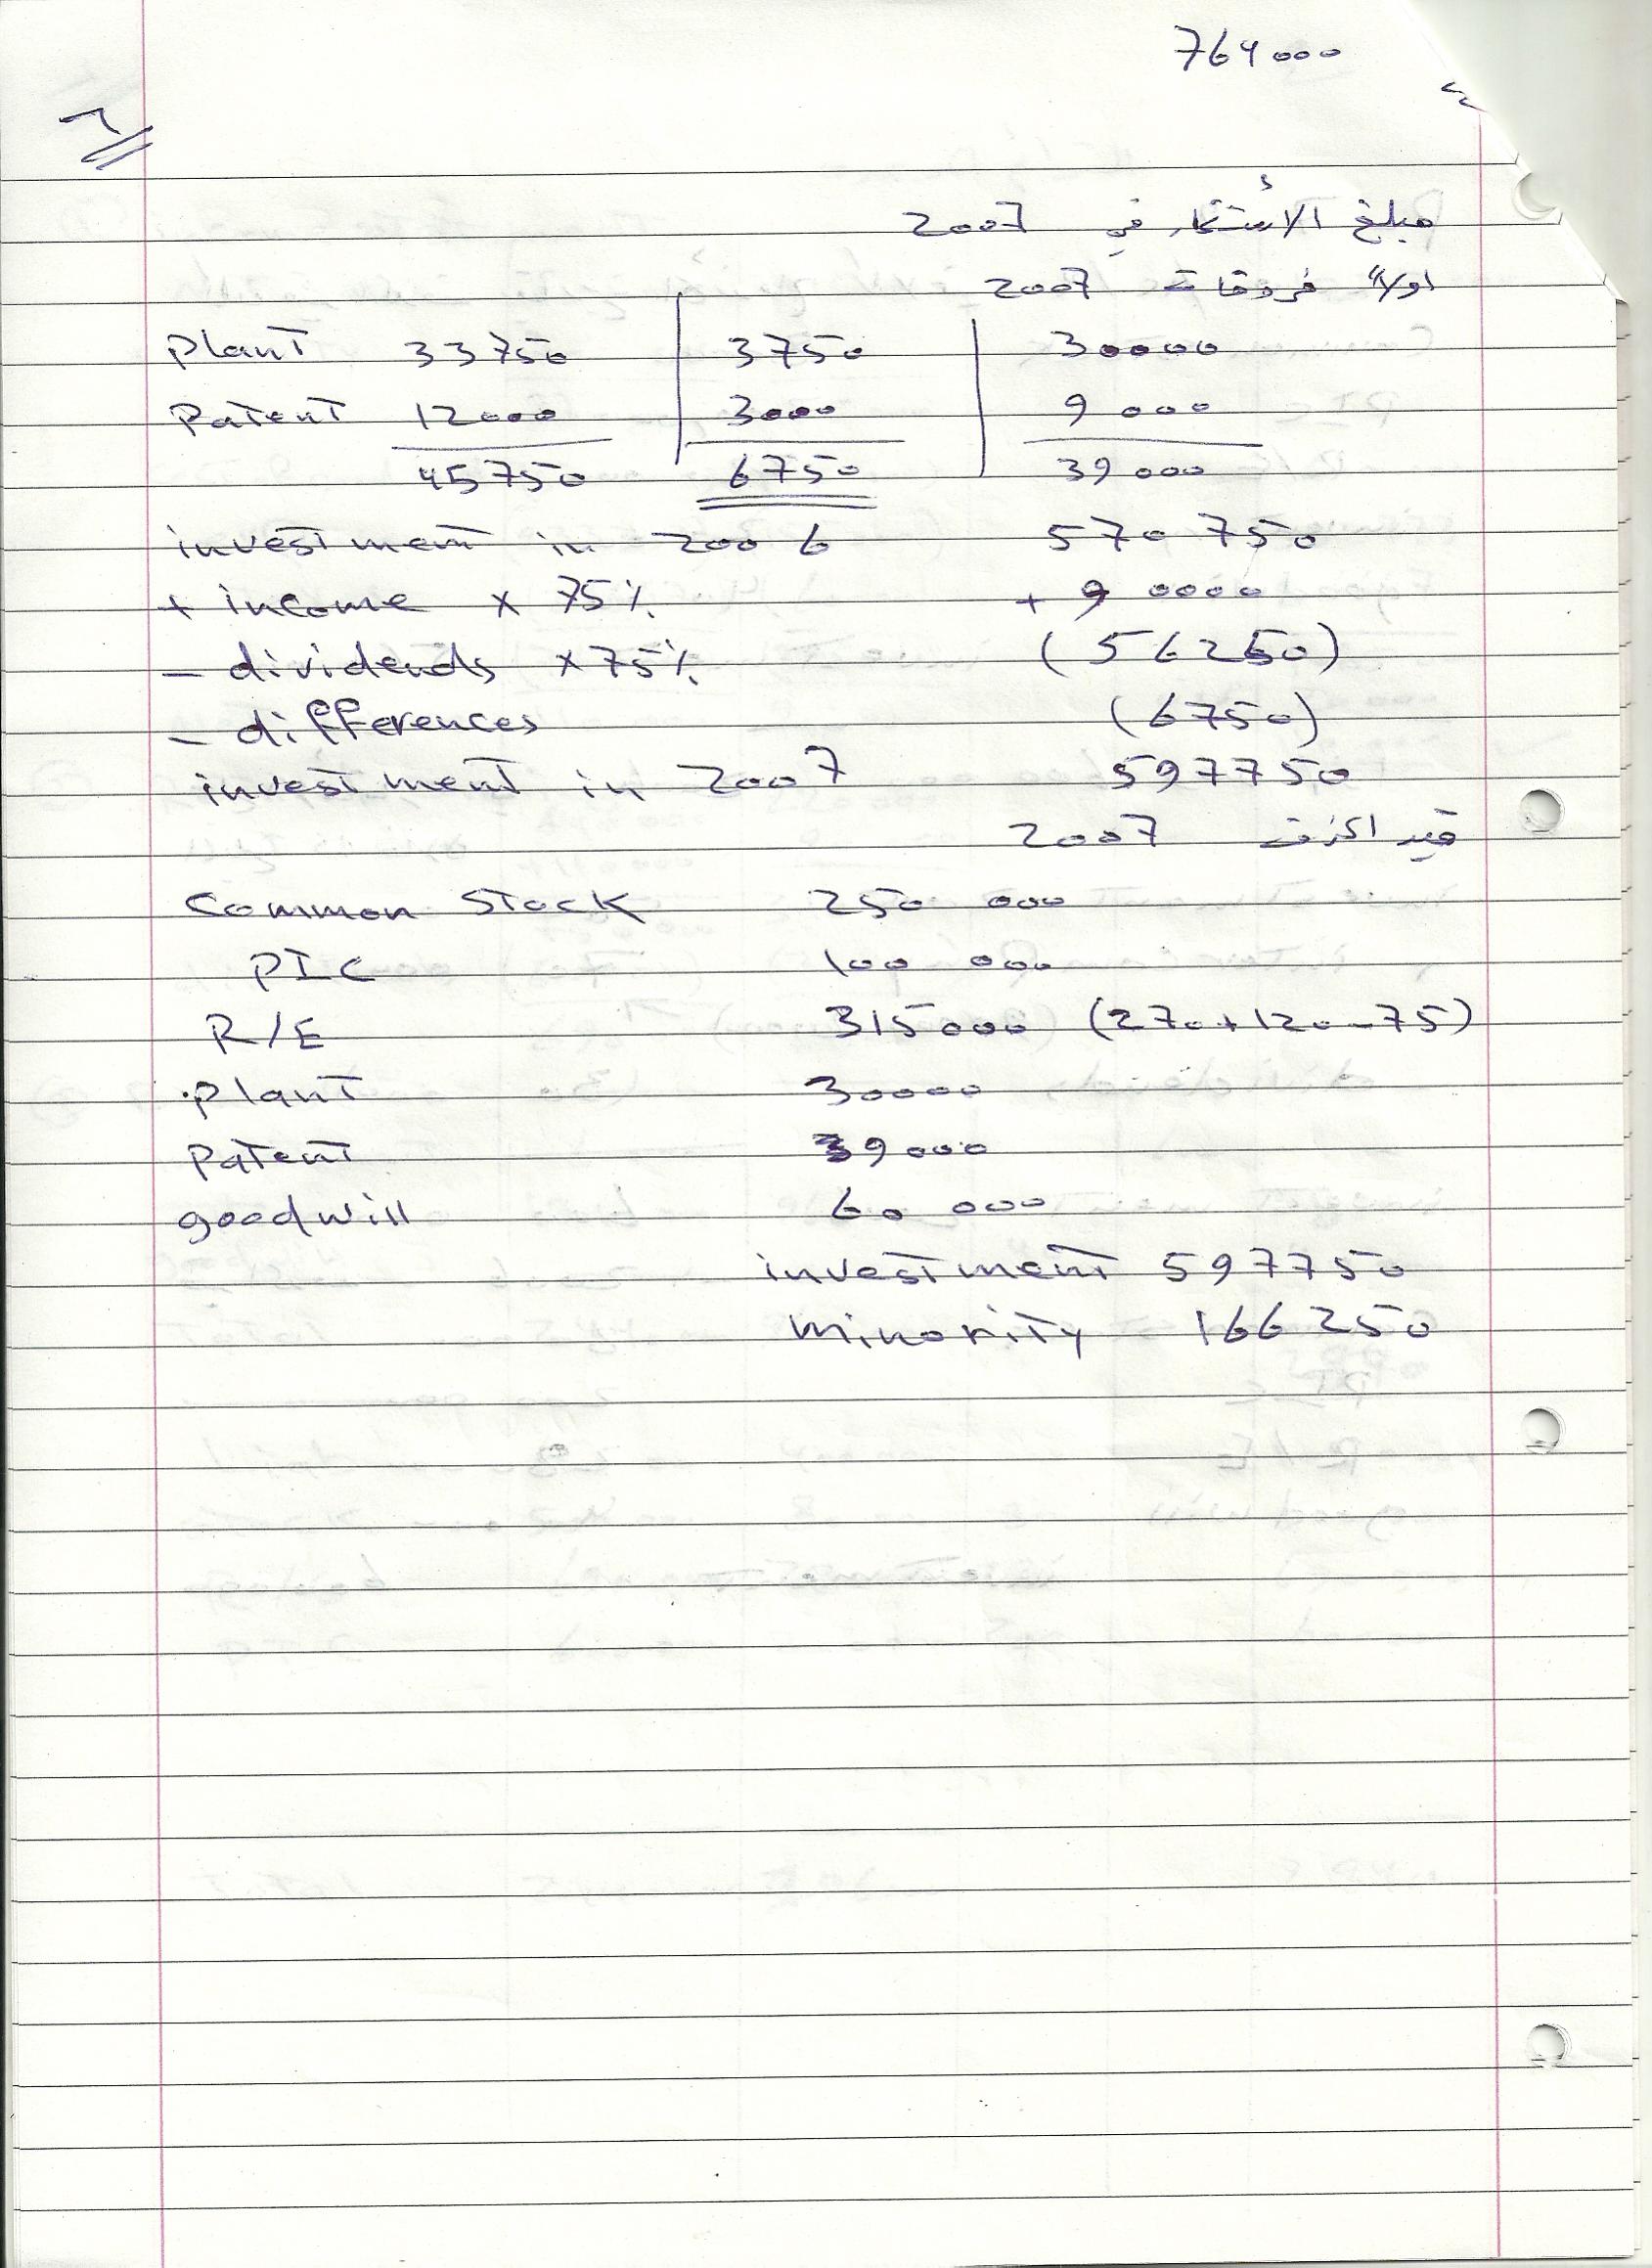 764000
6
مبلغ الأستثمار في 2007
اولاً فروقات 2007
Plant 33750 3750 30000
Patent 12000 3000 9000
45750 6750 39000
investment in 2006 570 750
+ income x 75% + 90000
- dividends x 75% (56250)
- differences (6750)
investment in 2007 597750
قيد الحذف 2007
Common Stock 250 000
PIC 100 000
R/E 315000 (270+120-75)
Plant 30000
Patent 39000
goodwill 60 000
investment 597750
Minority 166250